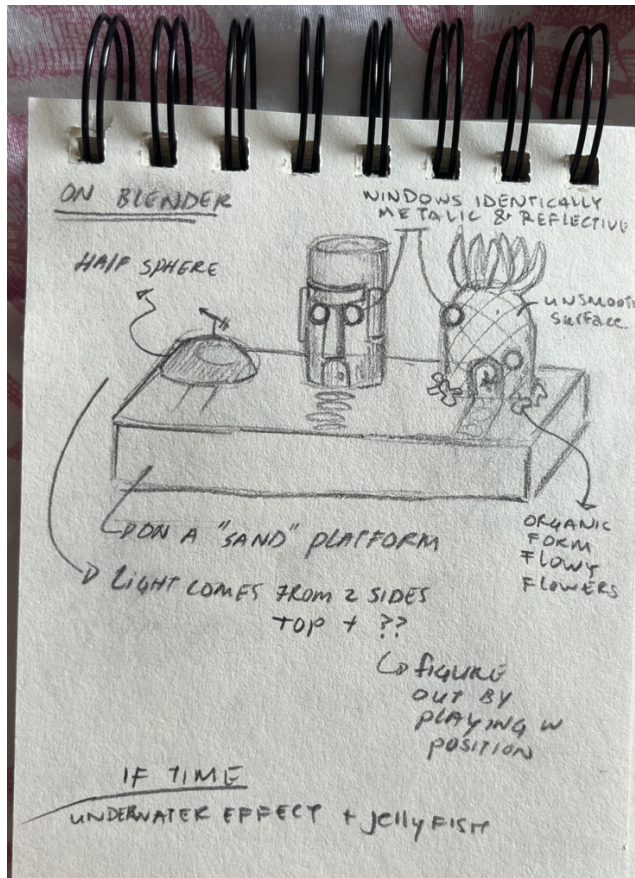 ON BLENDER
WINDOWS IDENTICALLY
METALIC & REFLECTIVE
HALF SPHERE
UNSMOOTH
SURFACE
ORGANIC
FORM
FLOWY
FLOWERS
ON A "SAND" PLATFORM
LIGHT COMES FROM 2 SIDES
TOP + ??
FIGURE
OUT BY
PLAYING W
POSITION
IF TIME
UNDERWATER EFFECT + JELLYFISH